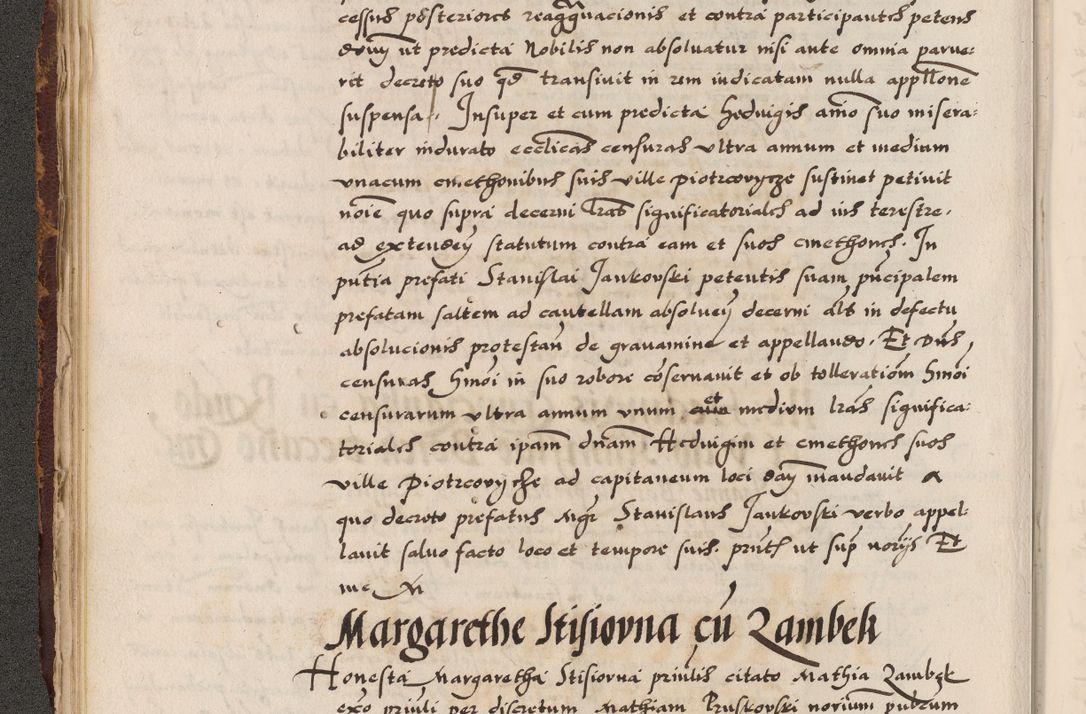 cessus posteriores reaggravacionis et contra participantes petens
dom ut predicta Nobilis non absolvatur nisi ante omnia parue:
rit decreto suo qd transivit in rem iudicatam nulla appllone
suspensa. Insuper et cum predicta Hedvigis aīo suo misera:
biliter indurato ecclicas censuras ultra annum et medium
unacum cmethonibus suis ville Piotrcovycze sustinet petivit
noīe quo supra decerni lrās significatoriales ad ius terestre.
ad extendeṇ statutum contra eam et suos cmethones. In
pntia prefati Stanislai Jankovski petentis suam pncipalem
prefatam saltem ad cautellam absolveṇ decerni als in defectu
absolucionis protestaṇ de gravamine et appellando. Et Dns
censuras hmōi in suo robore cōservavit et ob tolleratiōm hmōi
censurarum ultra annum unum et medium lrās significa:
toriales contra ipam dnam Hedvigim et cmethones suos
ville Piotrcovyche ad capitaneum loci daṇ mandavit a
quo decreto prefatus Mgr Stanislaus Jankovski verbo appel:
lavit salvo facto loco et tempore suis. prntb ut sup norijs Et
me N
Margarethe Stisiovna cū Zambek
Honesta Margaretha Stisiovna priulis citato Mathia Zambek
exo priuli per discretum Mathiam Pruskovski norium pubcum